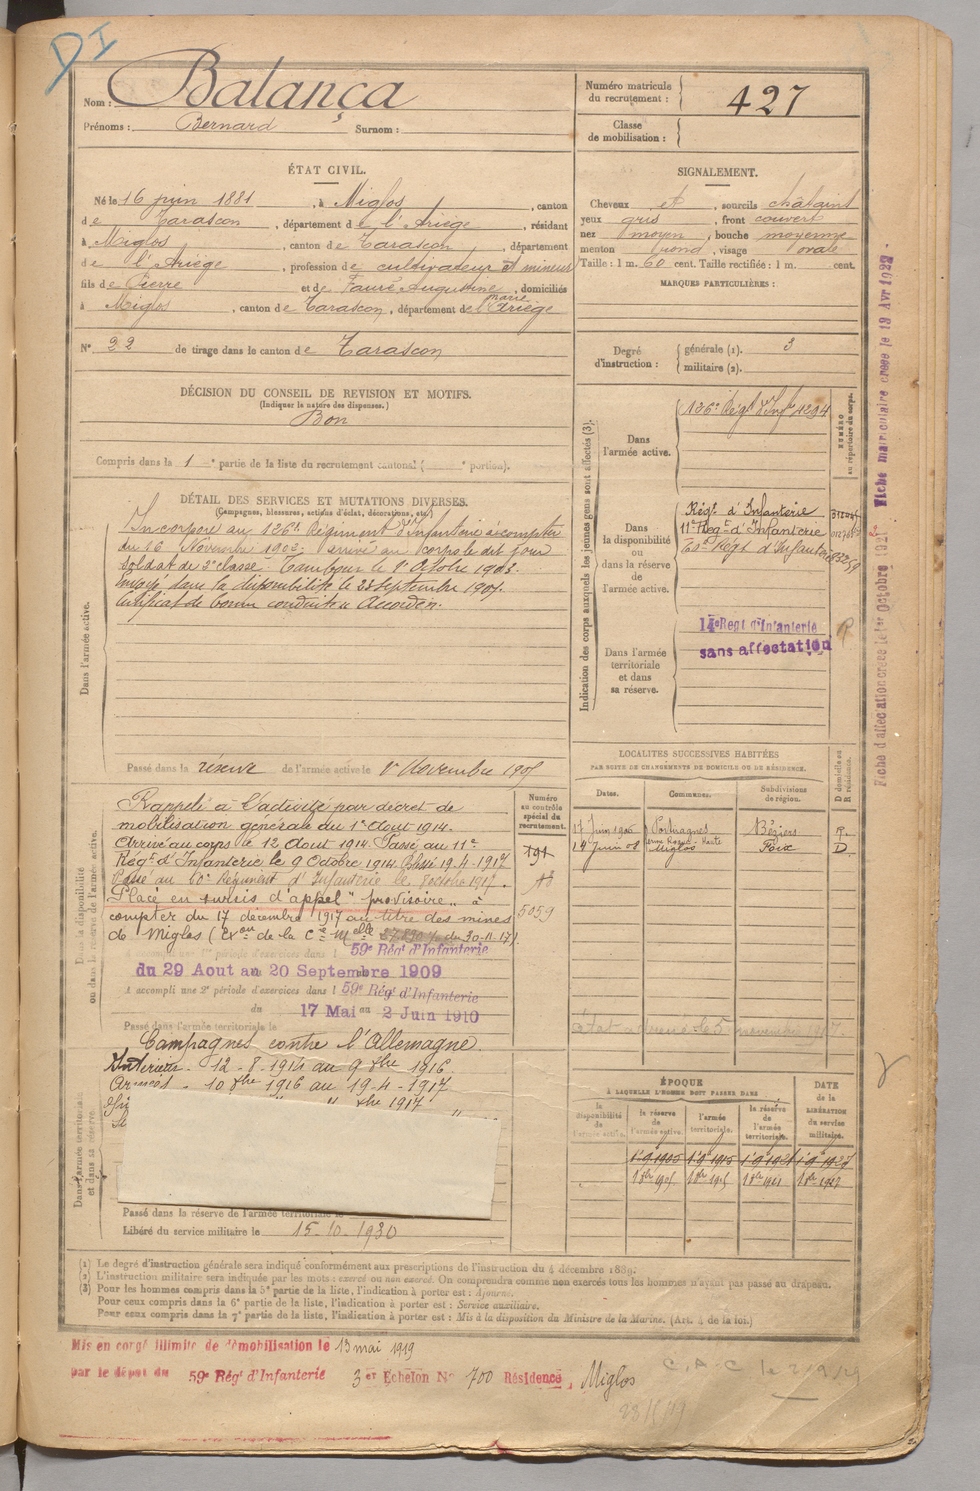 DI
Nom : Balança
Prénoms : Bernard Surnom :
Numéro matricule du recrutement : 427
Classe de mobilisation :
ÉTAT CIVIL.
Né le 16 juin 1881, à Miglos, canton
de Tarascon, département de l'Ariège, résidant
à Miglos, canton de Tarascon, département
de l'Ariège, profession de cultivateur et mineur
fils de Pierre et de Faure Augustine marie, domiciliés
à Miglos, canton de Tarascon, département de l'Ariège
N° 22 de tirage dans le canton de Tarascon
SIGNALEMENT.
Cheveux et, sourcils châtains
yeux gris, front couvert
nez moyen, bouche moyenne
menton rond, visage ovale
Taille : 1 m. 60 cent. Taille rectifiée : 1 m. cent.
MARQUES PARTICULIÈRES :
Degré d'instruction : générale (1). 3
militaire (2).
DÉCISION DU CONSEIL DE REVISION ET MOTIFS.
(Indiquer la nature des dispenses.)
Bon
Compris dans la 1e partie de la liste du recrutement cantonal ( e portion).
DÉTAIL DES SERVICES ET MUTATIONS DIVERSES.
(Campagnes, blessures, actions d'éclat, décorations, etc.)
Dans l'armée active.
Incorporé au 126e Régiment d'Infanterie à compter
du 16 Novembre 1902, arrivé au corps le dit jour
soldat de 2e classe. Tambour le 8 Octobre 1903.
Envoyé dans la disponibilité le 23 septembre 1905.
Certificat de bonne conduite "Accordé".
Passé dans la réserve de l'armée active le 1er Novembre 1905
Indication des corps auxquels les jeunes gens sont affectés (3).
NUMÉRO au répertoire du corps.
Dans l'armée active.
126e Régt d'Infie 4294
Dans la disponibilité ou dans la réserve de l'armée active.
Régt d'Infanterie
11e Régt d'Infanterie
60e Régt d'Infanterie
Dans l'armée territoriale et dans sa réserve.
14e Regt d'Infanterie
sans affectation
Fiche d'affectation créée le 1er Octobre 1921
Fiche matriculaire creee le 13 Avr 1922
Dans la disponibilité ou dans la réserve de l'armée active.
Numéro au contrôle spécial du recrutement.
191
5059
Rappelé à l'activité par décret de
mobilisation générale du 1er Aout 1914.
Arrivé au corps le 12 Aout 1914. Passé au 11e
Régt d'Infanterie le 9 Octobre 1914. Blessé 19.4.1917
Passé au 60e Régiment d'Infanterie le 8 octobre 1917.
Placé en sursis d'appel "provisoire" à
compter du 17 décembre 1917 au titre des mines
de Miglos ( de la du 30.11.17)
A accompli une 1re période d'exercices dans l 59e Rég' d'Infanterie
du 29 Aout au 20 Septembre 1909
A accompli une 2e période d'exercices dans l 59e Rég' d'Infanterie
du 17 Mai au 2 Juin 1910
Passé dans l'armée territoriale le
LOCALITÉS SUCCESSIVES HABITÉES
PAR SUITE DE CHANGEMENTS DE DOMICILE OU DE RÉSIDENCE.
Dates. Communes. Subdivisions de région. D domicile ou R résidence.
17 Juin 1906 Portiragnes Béziers R.
14 Juin 08 Miglos Foix D.
Dans l'armée territoriale et dans sa réserve.
Campagnes contre l'Allemagne
Intérieur. 12-8-1914 au 9 8bre 1916.
10 8bre 1916 au 19-4-1917
1917
Passé dans la réserve de l'armée territoriale le
Libéré du service militaire le 15-10-1930
ÉPOQUE
À LAQUELLE L'HOMME DOIT PASSER DANS
la disponibilité de l'armée active. la réserve de l'armée active. l'armée territoriale. la réserve de l'armée territoriale. DATE de la LIBÉRATION du service militaire.
(1) Le degré d'instruction générale sera indiqué conformément aux prescriptions de l'instruction du 4 décembre 1889.
(2) L'instruction militaire sera indiquée par les mots : exercé ou non exercé. On comprendra comme non exercés tous les hommes n'ayant pas passé au drapeau.
(3) Pour les hommes compris dans la 5e partie de la liste, l'indication à porter est : Ajourné.
Pour ceux compris dans la 6e partie de la liste, l'indication à porter est : Service auxiliaire.
Pour ceux compris dans la 7e partie de la liste, l'indication à porter est : Mis à la disposition du Ministre de la Marine. (Art. 4 de la loi.)
Mis en congé illimité de démobilisation le 13 mai 1919
par le dépôt du 59e Rég' d'Infanterie 3er Echelon N° 700 Résidence, Miglos